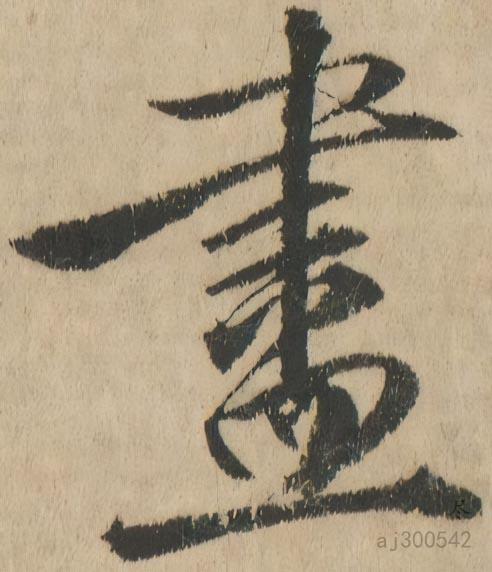 盡
尽
aj300542